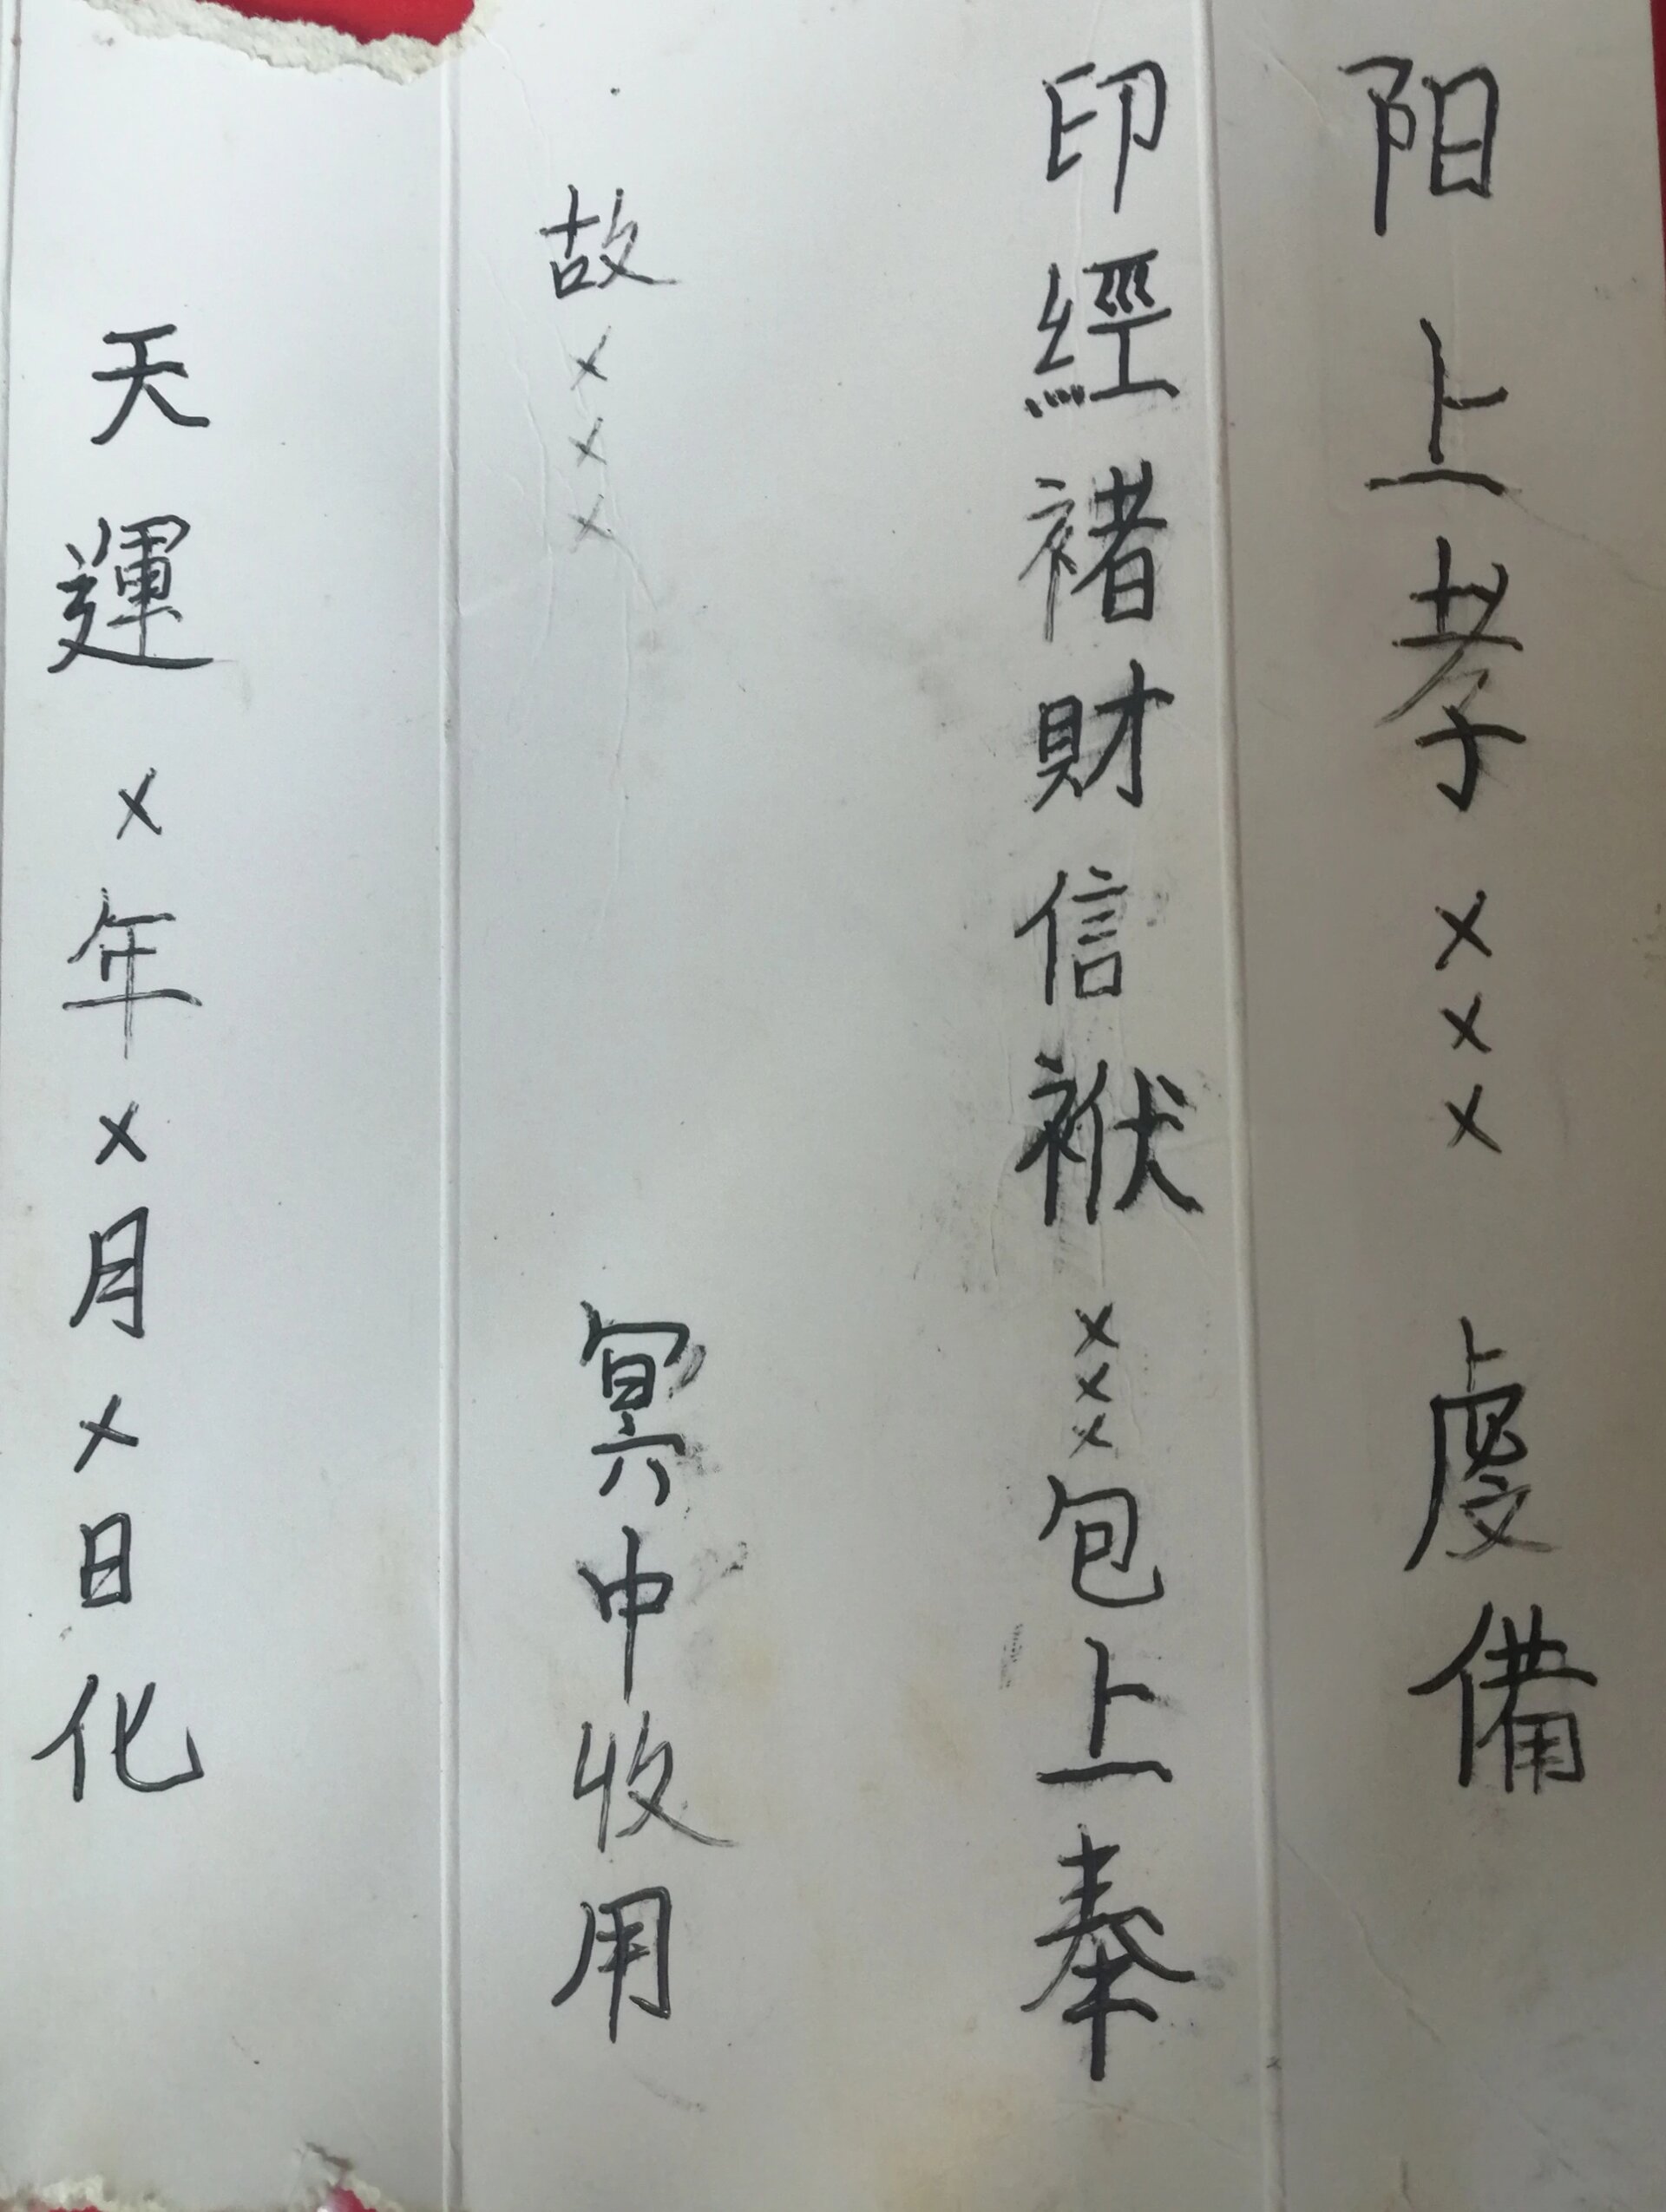 阳上孝××× 虔備
印經褚財信袱×××包上奉
故××× 冥中收用
天運×年×月×日化